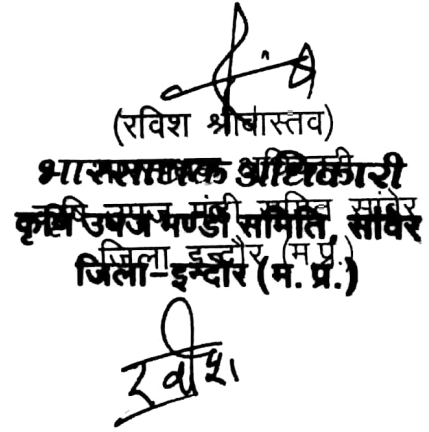 (रविश श्रीवास्तव)
भारसाधक अधिकारी
कृषि उपज मण्डी समिति, सांवेर
जिला इन्दौर (म.प्र.)
जिला-इन्दौर (म. प्र.)
रवीश